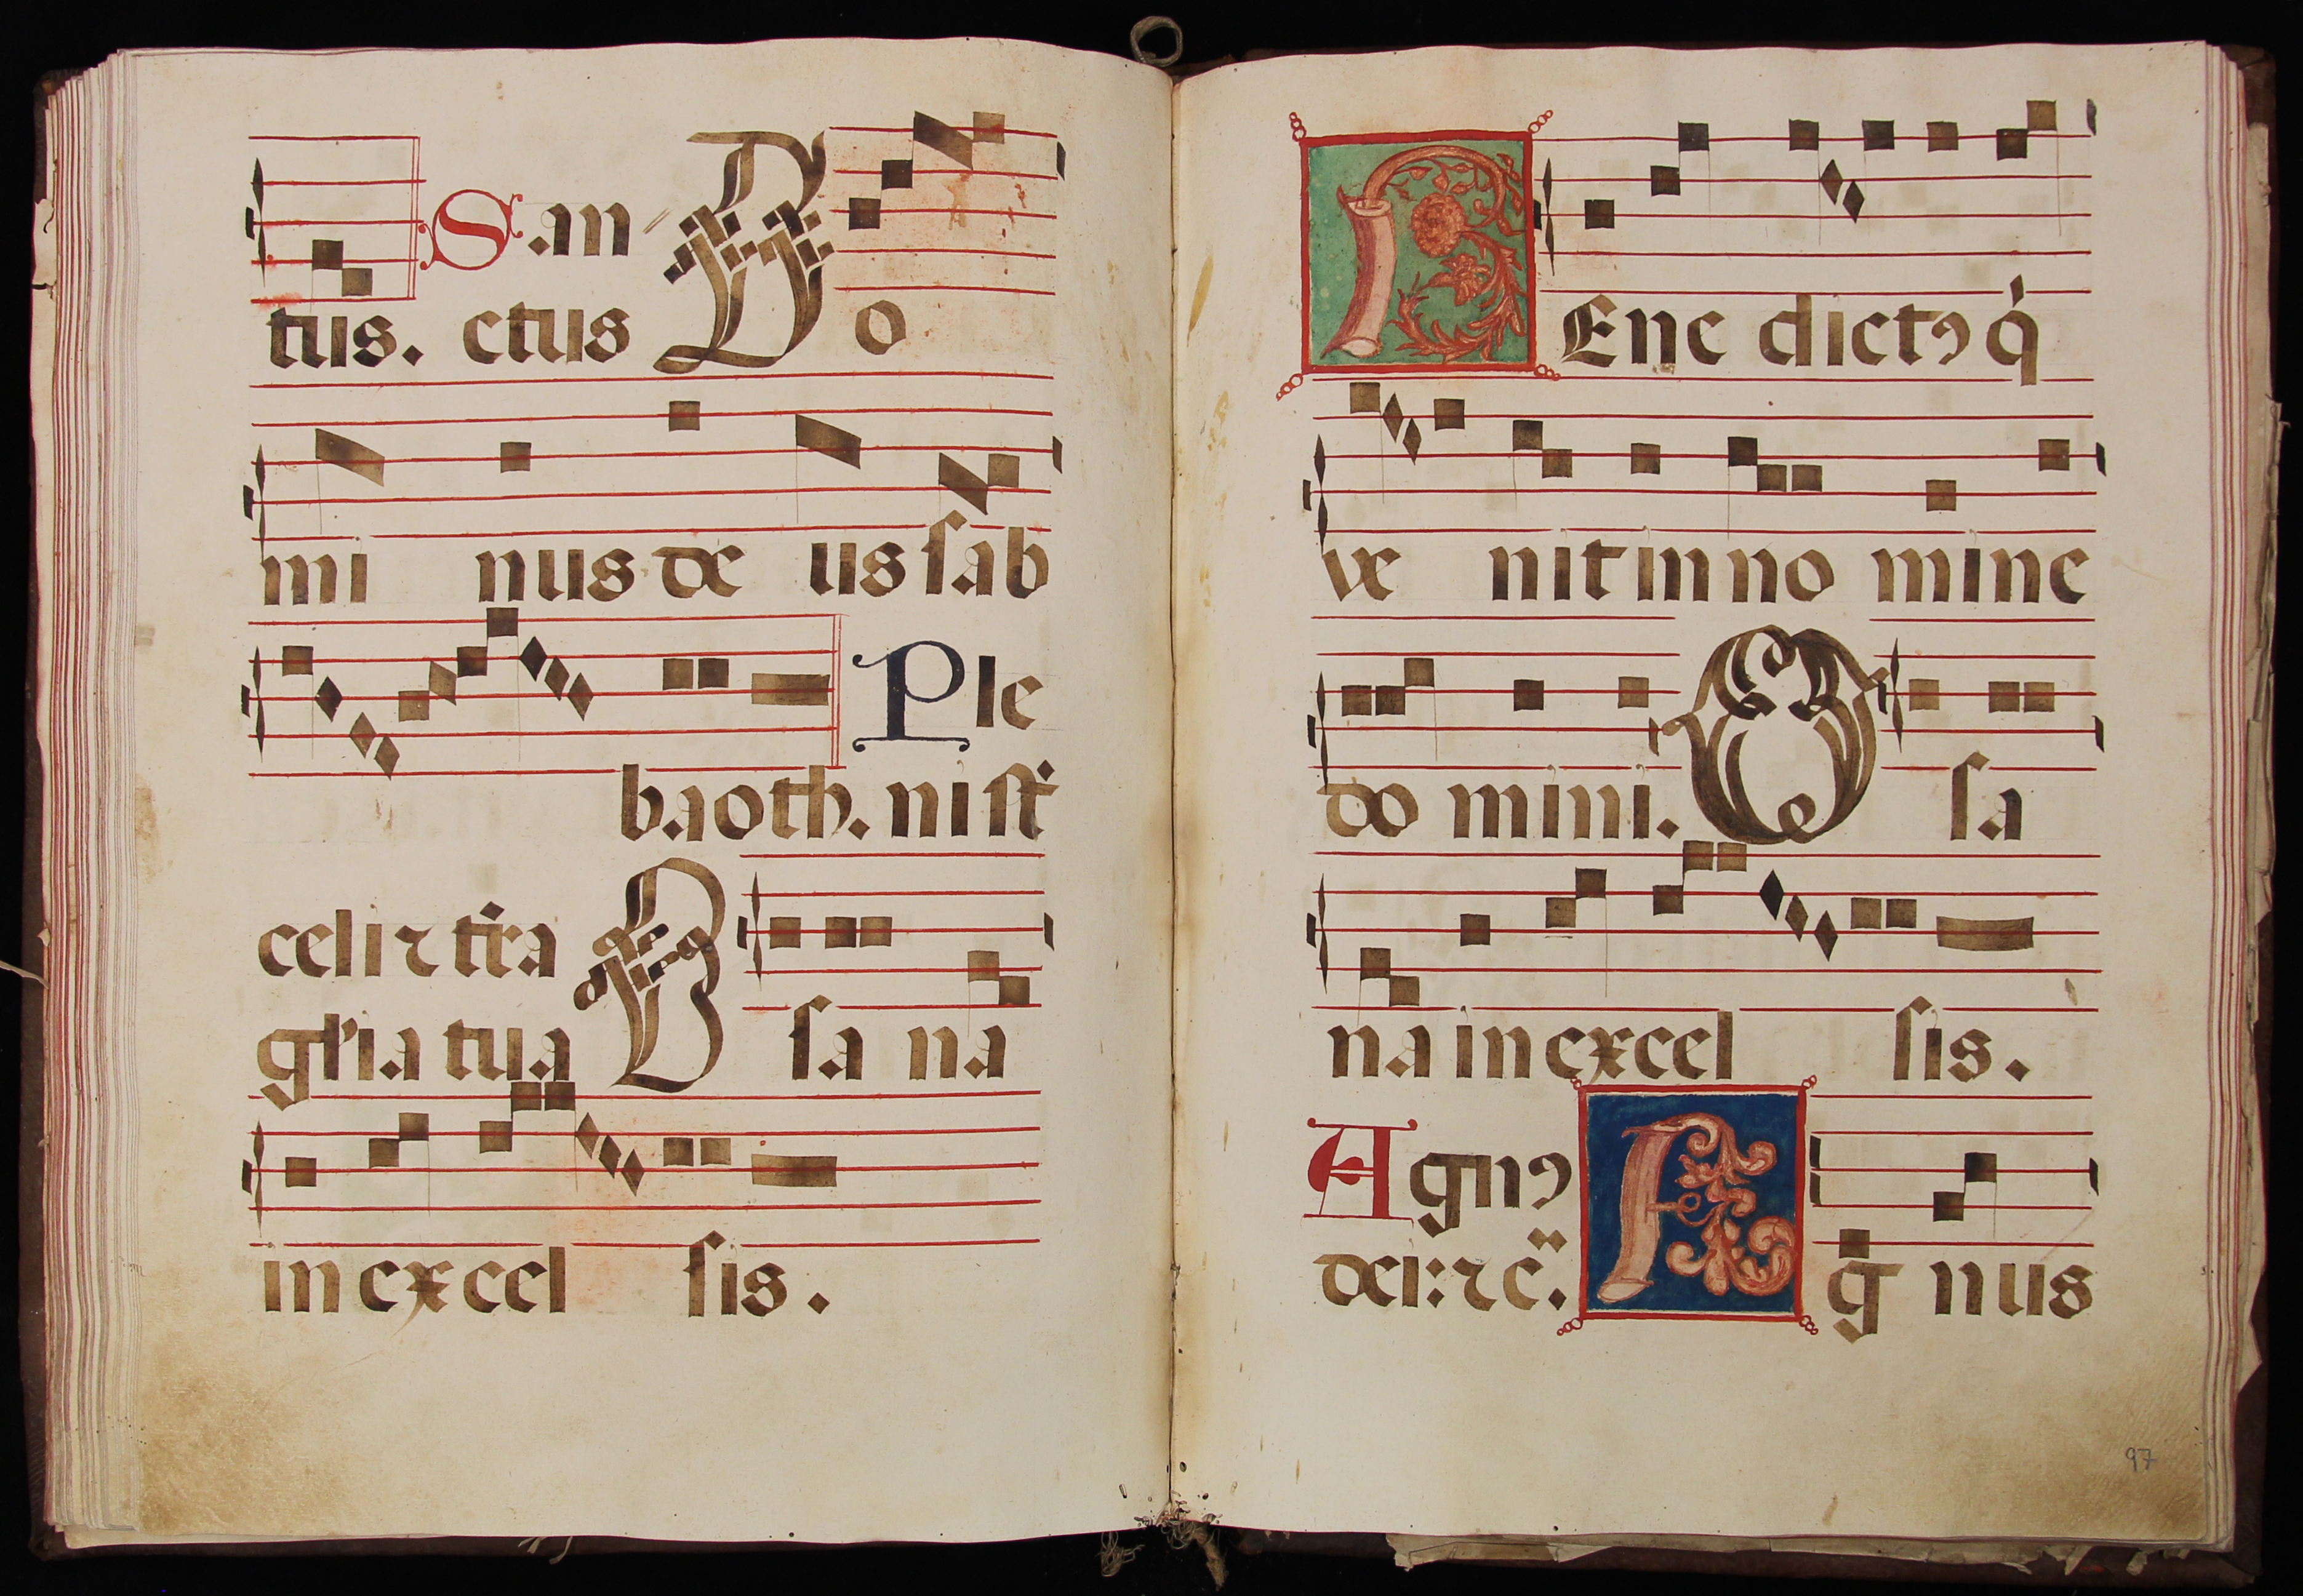 San
tus. ctus Do
mi nus de us ſab
Ple
baoth. ni ſt
celi ⁊ tr̄a
gl'ia tua O ſa na
in excel ſis.
BEne dictꝯ q̇
ve nit in no mine
do mini. O ſa
na in excel ſis.
Agnꝯ
dei: ⁊ c̈. A g nus
97